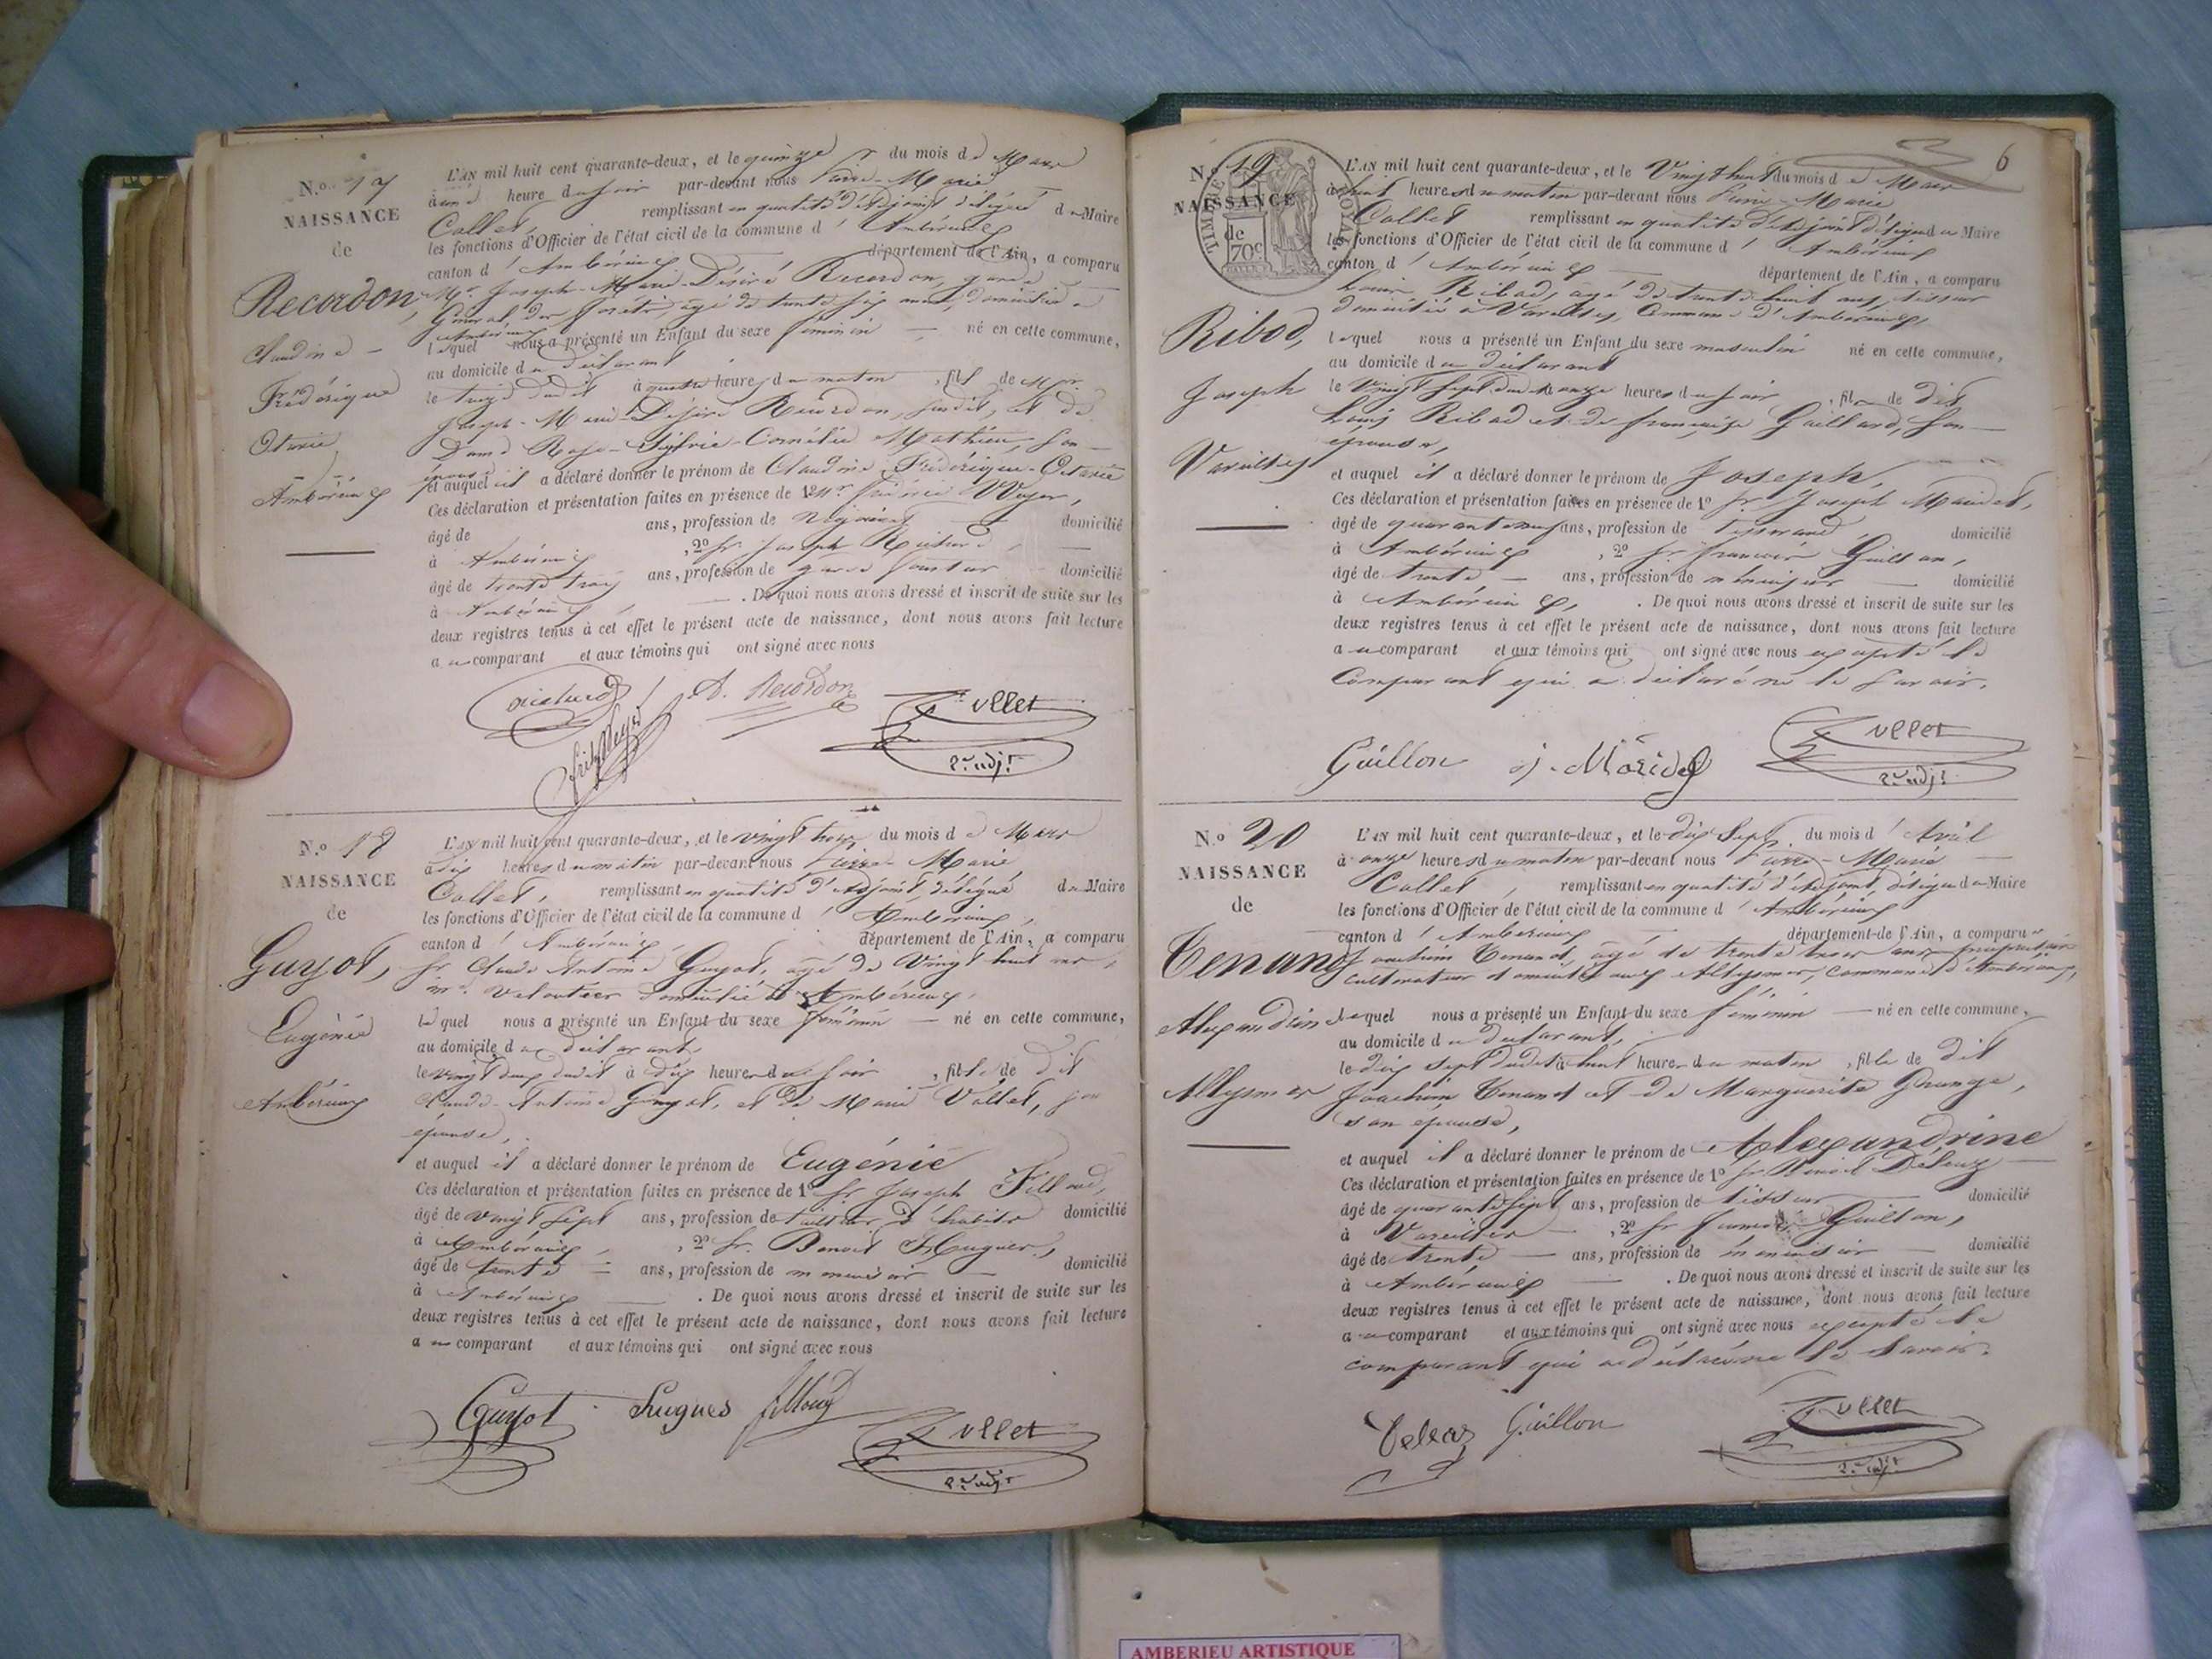 N.o 17
NAISSANCE
de
Recordon,
Claudine
Frédérique
Octavie
Ambérieux
L'AN mil huit cent quarante-deux, et le quinze du mois de Mars
à une heure du soir par-devant nous Pierre-Marie
Collet, remplissant en qualité d'Adjoint délégué du Maire
les fonctions d'Officier de l'état civil de la commune d'Ambérieux
canton d'Ambérieux département de l'Ain, a comparu
Mr. Joseph-Marie-Désiré Recordon, garde
Général des forêts, âgé de trente six ans, domicilié à
Ambérieux
lequel nous a présenté un Enfant du sexe féminin né en cette commune,
au domicile du déclarant
le treize dudit à quatre heures du matin, fil de Mr.
Joseph-Marie-Désiré Recordon, susdit, et de
Dame Rose-Sylvie-Cornélie Mathieu, son
épouse
et auquel il a déclaré donner le prénom de Claudine Frédérique-Octavie
Ces déclaration et présentation faites en présence de 1º Mr. Weyer,
âgé de ans, profession de domicilié
à Ambérieux, 2º Sr. Joseph
âgé de trente trois ans, profession de garde domicilié
à Ambérieux. De quoi nous avons dressé et inscrit de suite sur les
deux registres tenus à cet effet le présent acte de naissance, dont nous avons fait lecture
au comparant et aux témoins qui ont signé avec nous
A. Recordon
Collet
2e adjt
N.o 18
NAISSANCE
de
Guyot,
Eugénie
Ambérieux
L'AN mil huit cent quarante-deux, et le vingt trois du mois de Mars
à dix heures du matin par-devant nous Pierre-Marie
Collet, remplissant en qualité d'Adjoint, délégué du Maire
les fonctions d'Officier de l'état civil de la commune d'Ambérieux,
canton d'Ambérieux département de l'Ain, a comparu
Sr. Claude Antoine Guyot, âgé de vingt huit ans,
md. domicilié à Ambérieux,
lequel nous a présenté un Enfant du sexe féminin né en cette commune,
au domicile du déclarant,
le vingt deux dudit à dix heures du soir, fille de dit
Claude-Antoine Guyot, et de Marie Vallet, son
épouse,
et auquel il a déclaré donner le prénom de Eugénie
Ces déclaration et présentation faites en présence de 1º Sr. Joseph Filloud,
âgé de vingt sept ans, profession de tailleur d'habits domicilié
à Ambérieux, 2º Sr. Benoit Hugues,
âgé de trente ans, profession de menuisier domicilié
à Ambérieux. De quoi nous avons dressé et inscrit de suite sur les
deux registres tenus à cet effet le présent acte de naissance, dont nous avons fait lecture
au comparant et aux témoins qui ont signé avec nous
Guyot Hugues filloud
Collet
2e adjt
6
N.o 19
NAISSANCE
de
TIMBRE ROYAL
70c
Ribod,
Joseph
Vareilles
L'AN mil huit cent quarante-deux, et le Vingt huit du mois de Mars
à huit heures du matin par-devant nous Pierre-Marie
Collet remplissant en qualité d'Adjoint délégué du Maire
les fonctions d'Officier de l'état civil de la commune d'Ambérieux
canton d'Ambérieux département de l'Ain, a comparu
Louis Ribod, âgé de trente huit ans, tisseur
domicilié à Vareilles, Commune d'Ambérieux,
lequel nous a présenté un Enfant du sexe masculin né en cette commune,
au domicile du déclarant
le vingt sept du à onze heures du soir, fils de dit
Louis Ribod et de françoise Gaillard, son
épouse,
et auquel il a déclaré donner le prénom de Joseph,
Ces déclaration et présentation faites en présence de 1º Sr. Joseph
âgé de quarante neuf ans, profession de tisserand domicilié
à Ambérieux, 2º Sr. françois Guillon,
âgé de trente ans, profession de menuisier domicilié
à Ambérieux. De quoi nous avons dressé et inscrit de suite sur les
deux registres tenus à cet effet le présent acte de naissance, dont nous avons fait lecture
au comparant et aux témoins qui ont signé avec nous excepté le
Comparant qui a déclaré ne le savoir.
Guillon
Collet
2e adjt
N.o 20
NAISSANCE
de
Tenand
Alexandrine
Allymes
L'AN mil huit cent quarante-deux, et le dix sept du mois d'Avril
à onze heures du matin par-devant nous Pierre-Marie
Collet, remplissant en qualité d'Adjoint, délégué du Maire
les fonctions d'Officier de l'état civil de la commune d'Ambérieux
canton d'Ambérieux département de l'Ain, a comparu
Joachim Tenand, âgé de trente trois ans propriétaire
cultivateur domicilié aux Allymes, commune d'Ambérieux,
lequel nous a présenté un Enfant du sexe féminin né en cette commune,
au domicile du déclarant,
le dix sept dudit à huit heures du matin, fille de dit
Joachim Tenand et de Marguerite Grange,
son épouse,
et auquel il a déclaré donner le prénom de Alexandrine
Ces déclaration et présentation faites en présence de 1º Sr. Benoit
âgé de quarante sept ans, profession de tisseur domicilié
à Vareilles, 2º Sr françois Guillon,
âgé de trente ans, profession de menuisier domicilié
à Ambérieux. De quoi nous avons dressé et inscrit de suite sur les
deux registres tenus à cet effet le présent acte de naissance, dont nous avons fait lecture
au comparant et aux témoins qui ont signé avec nous excepté le
comparant qui a déclaré ne le savoir.
Guillon
Collet
2e adjt
AMBERIEU ARTISTIQUE